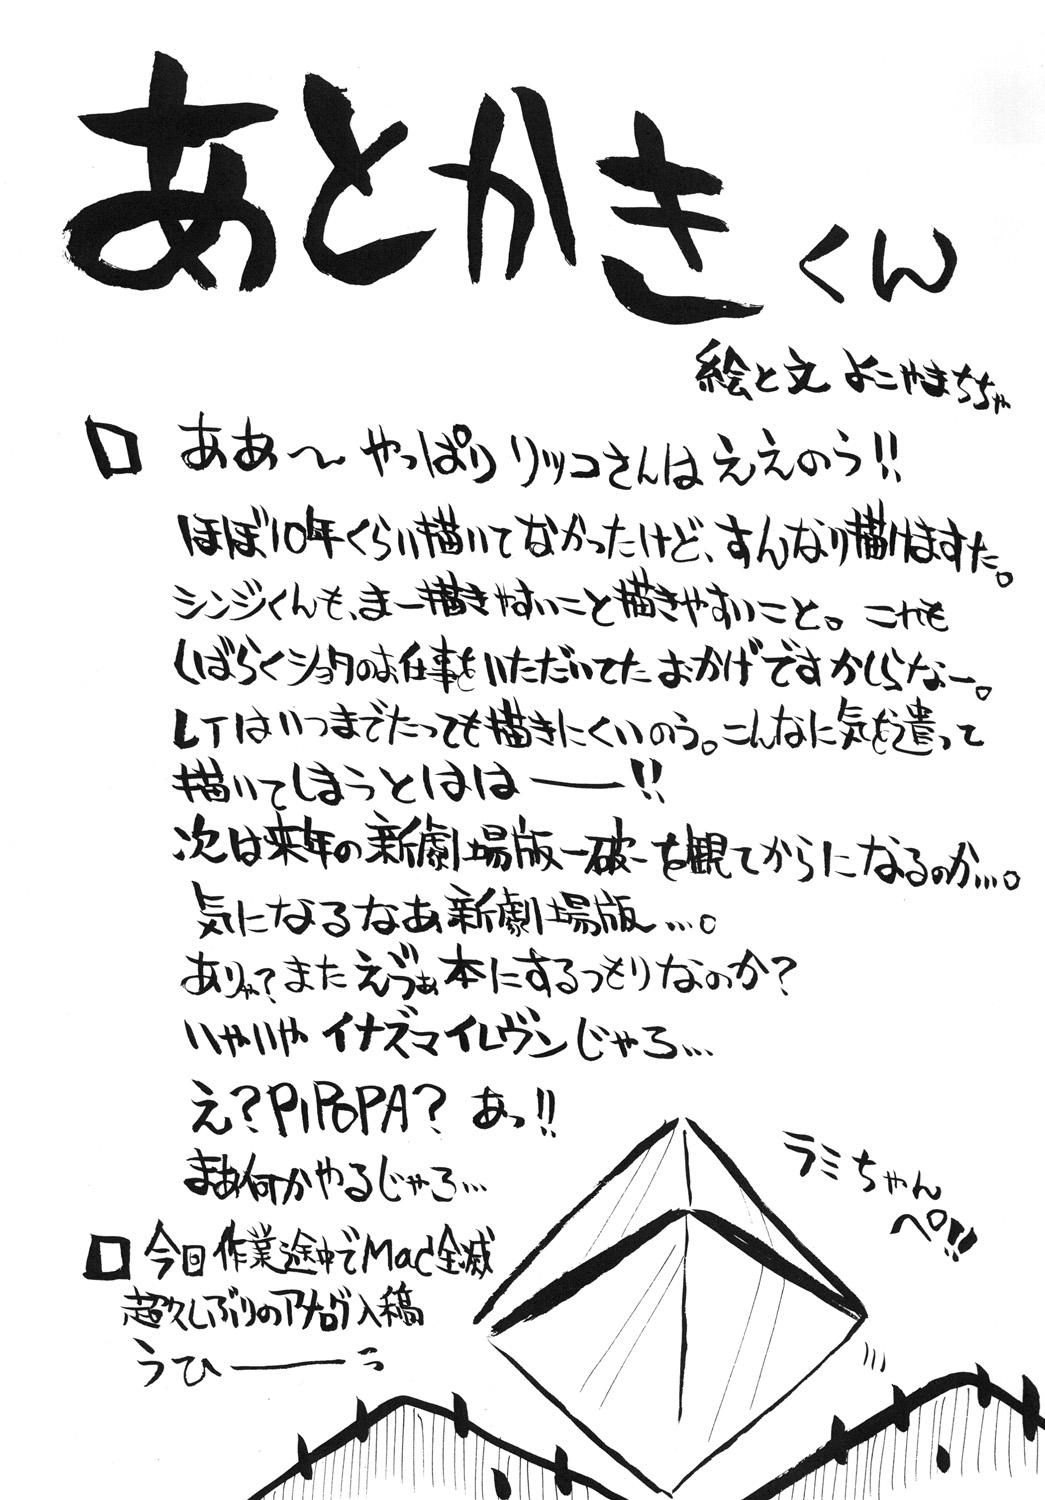 あとかきくん
絵と文 よこやまちちゃ
□ ああ〜やっぱりリッコさんはええのう!!
ほぼ10年くらい描いてなかったけど、すんなり描けますた。
シンジくんも、まー描きやすいこと描きやすいこと。これも
しばらくショタのお仕事をいただいてたおかげですかしらなー。
レイはいつまでたっても描きにくいのう。こんなに気を遣って
描いてしまうとはは――!!
次は来年の新劇場版-破-を観てからになるのか…。
気になるなあ新劇場版…。
ありゃ?またえゔぁ本にするつもりなのか?
いやいやイナズマイレヴンじゃろ…
え?PiPoPA?あっ!!
まあ何かやるじゃろ…
□ 今回作業途中でMac全滅
超久しぶりのアナログ入稿
うひ――っ
ラミちゃん
ぺ!!